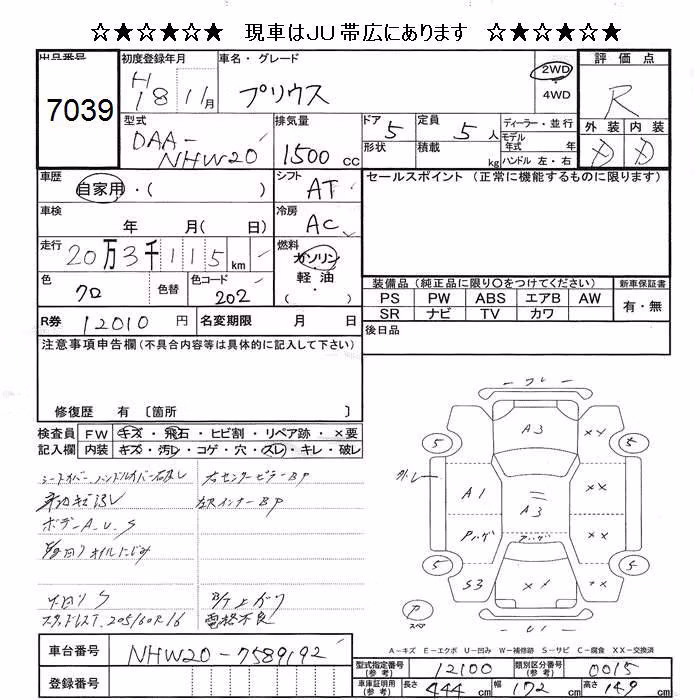 ☆★☆★☆★☆ 現車はJU帯広にあります ☆★☆★☆★☆
出品番号
7039
初度登録年月
H18 11月
車名・グレード
プリウス
2WD
・
4WD
評価点
R
外装 内装
型式
DAA-NHW20
排気量
1500 cc
ドア 5
形状
定員 5 人
積載 kg
ディーラー・並行
モデル年式 年
ハンドル 左・右
車歴
自家用・( )
シフト
AT
セールスポイント (正常に機能するものに限ります)
車検
年 月( 日)
冷房
AC
走行
20万3千115 km
燃料
ガソリン
軽油
色
クロ
色替
色コード
202
装備品 (純正品に限り〇をつけてください)
PS PW ABS エアB AW
SR ナビ TV カワ
新車保証書
有・無
R券 12010 円
名変期限 月 日
後日品
注意事項申告欄(不具合内容等は具体的に記入して下さい)
修復歴 有 〔箇所 〕
検査員 FW キズ・飛石・ヒビ割・リペア跡・×要
記入欄 内装 キズ・汚レ・コゲ・穴・スレ・キレ・破レ
右センターピラーBP
ボデーA.U.S
下回りS
スタッドレス 205/60R16
電格不良
フレ
A3
××
5
5
A1
A3
××
××
5
5
S3
××
××
A-キズ E-エクボ U-凹み W-補修跡 S-サビ C-腐食 XX-交換済
車台番号
NHW20-7589192
登録番号
型式指定番号(参考) 12100
類別区分番号(参考) 0015
車庫証明用(参考) 長さ 444 cm 幅 172 cm 高さ 149 cm